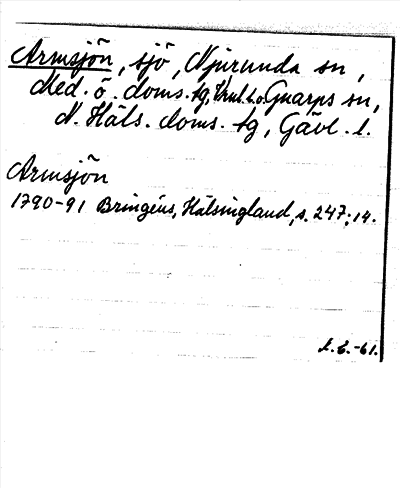 Armsjön, sjö, Njurunda sn,
Med. ö. doms. tg, Vnl. l. o. Gnarps sn,
N. Häls. doms. tg, Gävl. l.
Armsjön
1790-91 Bringéus, Hälsingland, s. 247; 14.
L. E. -61.